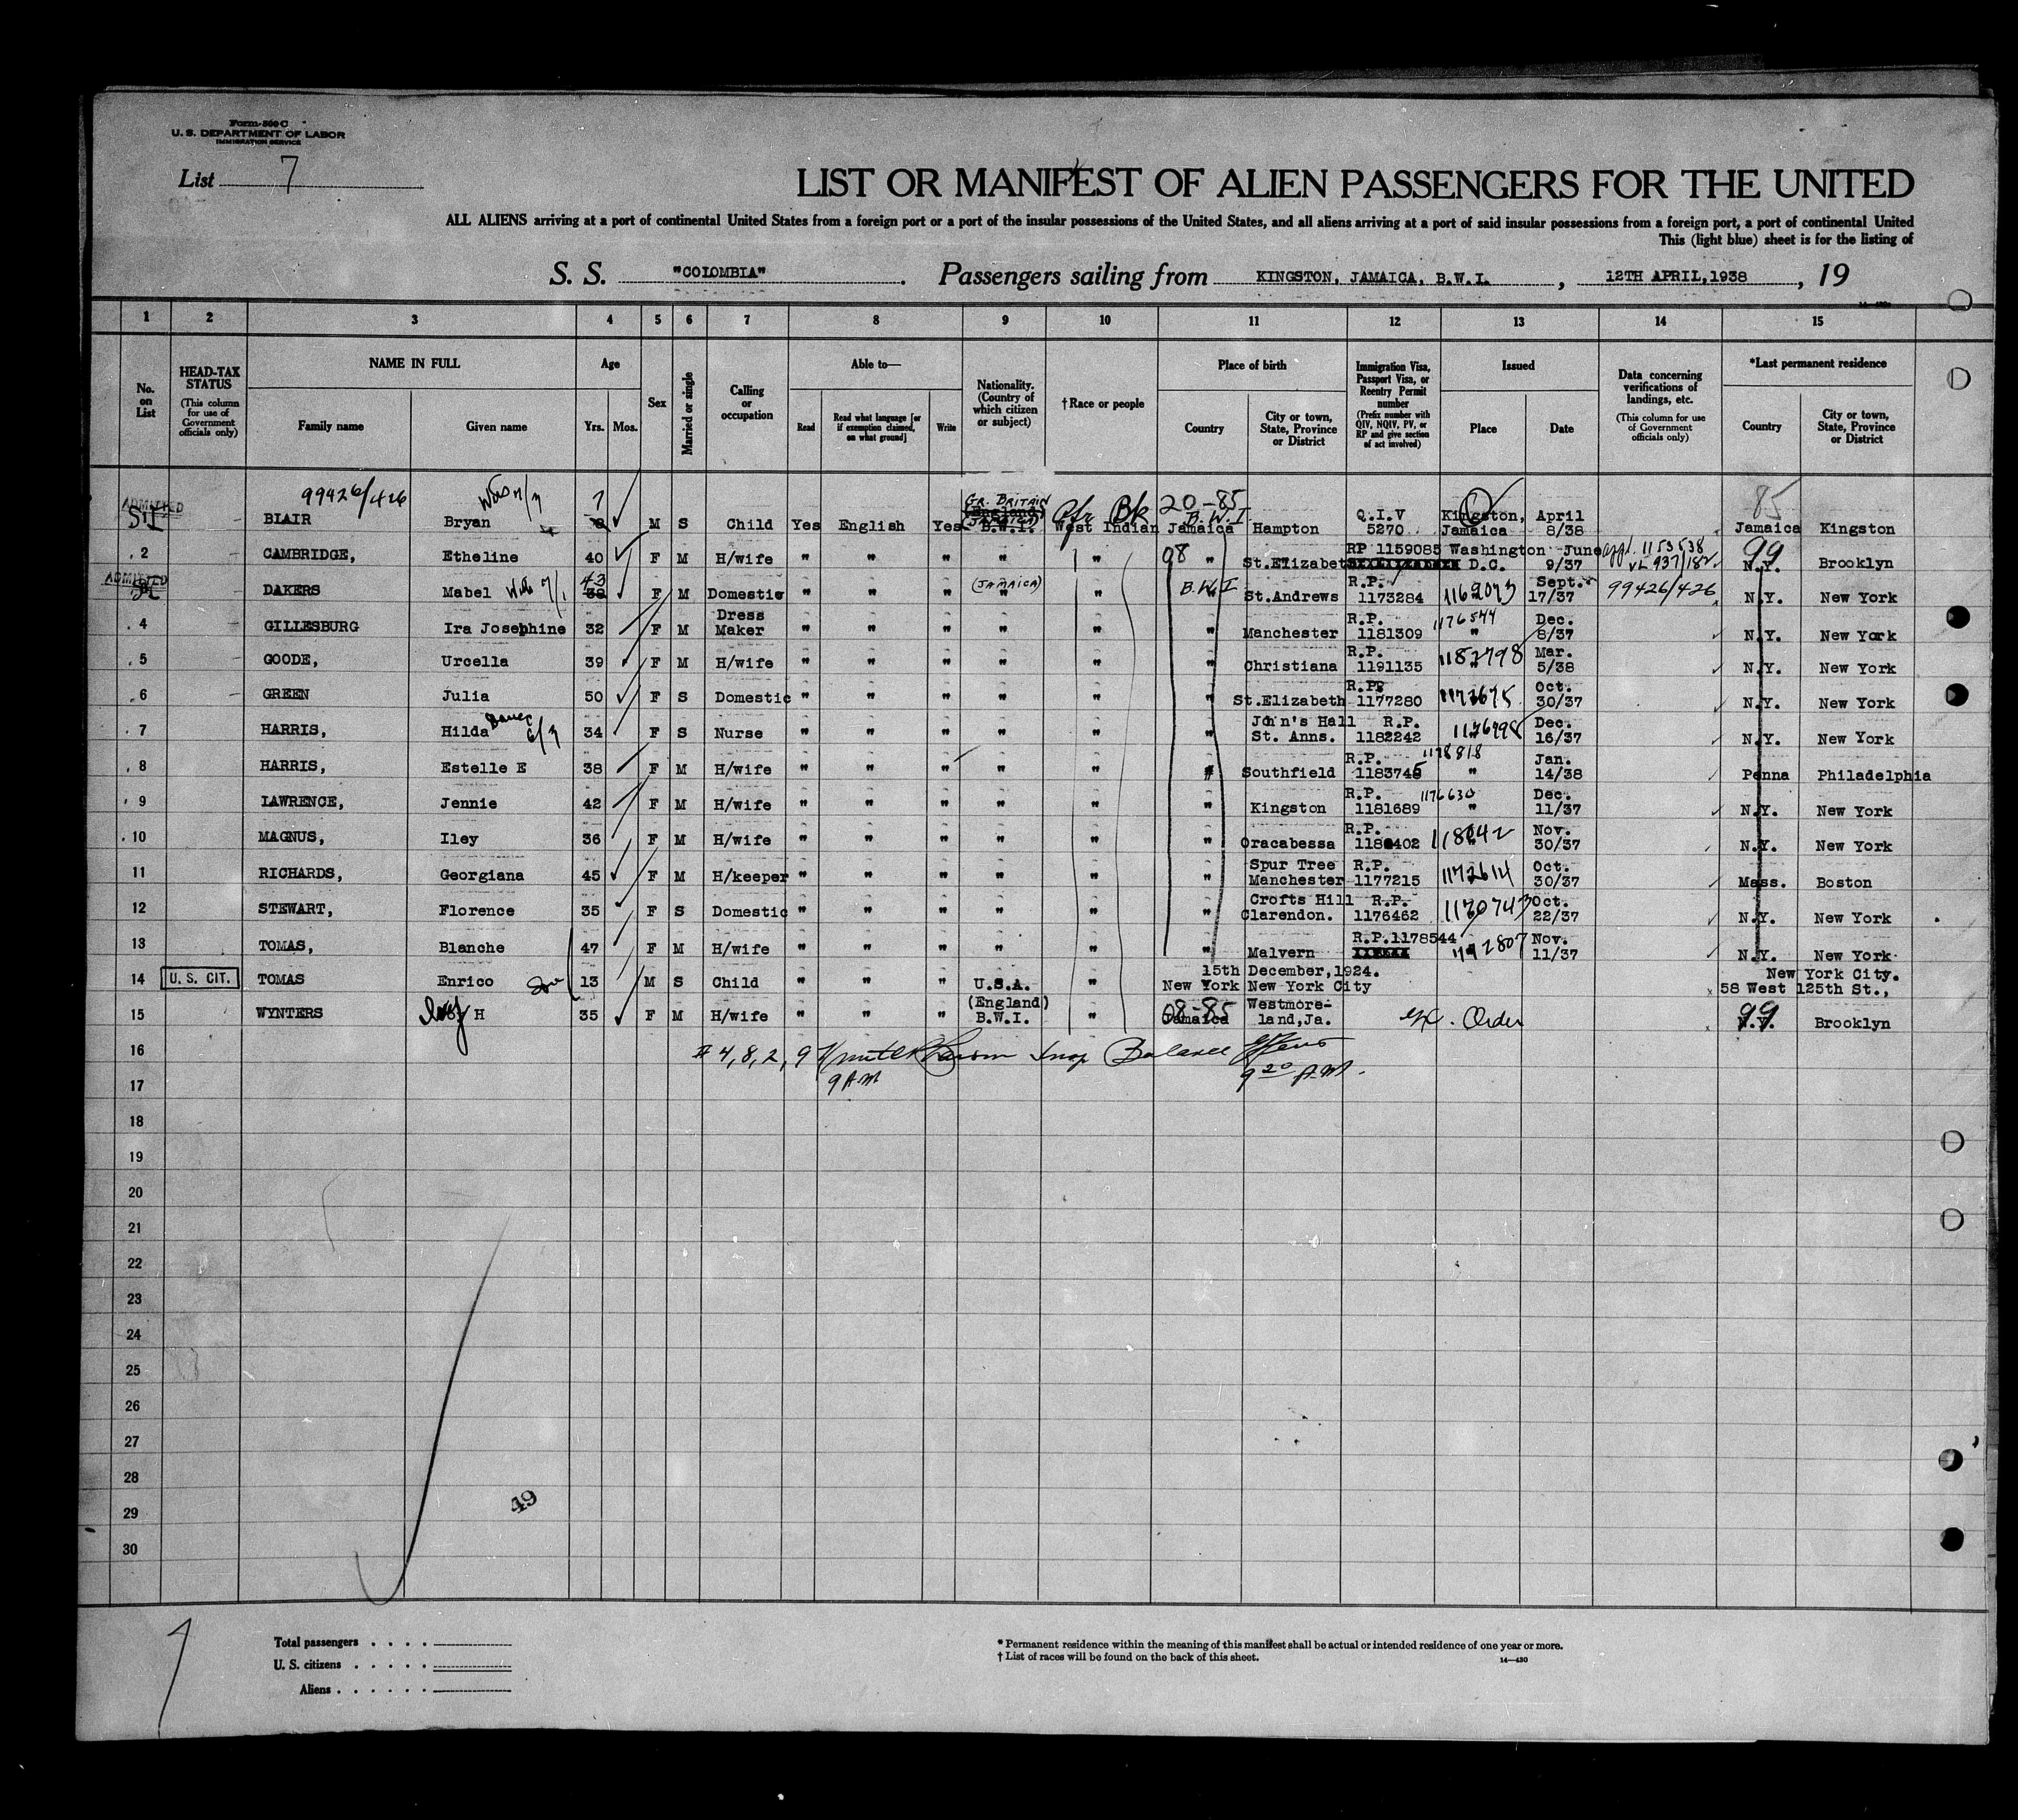 Form-500 C
U. S. DEPARTMENT OF LABOR
IMMIGRATION SERVICE
List 7
LIST OR MANIFEST OF ALIEN PASSENGERS FOR THE UNITED
ALL ALIENS arriving at a port of continental United States from a foreign port or a port of the insular possessions of the United States, and all aliens arriving at a port of said insular possessions from a foreign port, a port of continental United
This (light blue) sheet is for the listing of
S. S. "COLOMBIA" Passengers sailing from KINGSTON, JAMAICA, B.W.I. , 12TH APRIL,1938 , 19
1 2 3 4 5 6 7 8 9 10 11 12 13 14 15
No. on List
HEAD-TAX STATUS (This column for use of Government officials only)
NAME IN FULL Family name Given name
Age Yrs. Mos.
Sex
Married or single
Calling or occupation
Able to— Read Read what language [or if exemption claimed, on what ground] Write
Nationality. (Country of which citizen or subject)
†Race or people
Place of birth Country City or town, State, Province or District
Immigration Visa, Passport Visa, or Reentry Permit number (Prefix number with QIV, NQIV, PV, or RP and give section of act involved)
Issued Place Date
Data concerning verifications of landings, etc. (This column for use of Government officials only)
*Last permanent residence Country City or town, State, Province or District
99426/426 7 GR. BRITAIN 20-85 85
ADMITTED S.I. BLAIR Bryan M S Child Yes English Yes (England) (JAMAICA) B.W.I. Afr Bk West Indian B.W.I. Jamaica Hampton Q.I.V 5270 Kingston, Jamaica April 8/38 Jamaica Kingston
2 CAMBRIDGE, Etheline 40 F M H/wife " " " " " 08 " St.Elizabeth RP 1159085 Washington D.C. June 9/37 appl. 1153538 VL 937/182 99 N.Y. Brooklyn
ADMITTED SI DAKERS Mabel 43 38 F M Domestic " " " (JAMAICA) " " B.W.I " St.Andrews R.P. 1173284 1162073 Sept. 17/37 99426/426 N.Y. New York
4 GILLESBURG Ira Josephine 32 F M Dress Maker " " " " " " Manchester R.P. 1181309 1176544 " Dec. 8/37 N.Y. New York
5 GOODE, Urcella 39 F M H/wife " " " " " " Christiana R.P. 1191135 1182798 " Mar. 5/38 N.Y. New York
6 GREEN Julia 50 F S Domestic " " " " " " St.Elizabeth R.P. 1177280 1172675 Oct. 30/37 N.Y. New York
7 HARRIS, Hilda 34 F S Nurse " " " " " " John's Hall St. Anns. R.P. 1182242 1176998 Dec. 16/37 N.Y. New York
8 HARRIS, Estelle E 38 F M H/wife " " " " " " Southfield R.P. 1183745 1178818 " Jan. 14/38 Penna Philadelphia
9 LAWRENCE, Jennie 42 F M H/wife " " " " " " Kingston R.P. 1181689 1176630 " Dec. 11/37 N.Y. New York
10 MAGNUS, Iley 36 F M H/wife " " " " " " Oracabessa R.P. 1180402 118042 Nov. 30/37 N.Y. New York
11 RICHARDS, Georgiana 45 F M H/keeper " " " " " " Spur Tree Manchester R.P. 1177215 1172614 Oct. 30/37 Mass. Boston
12 STEWART, Florence 35 F S Domestic " " " " " " Crofts Hill Clarendon. R.P. 1176462 1170743 Oct. 22/37 N.Y. New York
13 TOMAS, Blanche 47 F M H/wife " " " " " " Malvern R.P.1178544 1172807 Nov. 11/37 N.Y. New York
14 U. S. CIT. TOMAS Enrico Son 13 M S Child " " " U.S.A. " 15th December,1924. New York New York City New York City. 58 West 125th St.,
15 WYNTERS Ivy H 35 F M H/wife " " " (England) B.W.I. " 08-85 Jamaica Westmoreland,Ja. Order 99 N.Y. Brooklyn
16 # 4, 8, 2, 9 Insp Balance
17 9 AM 9 20 A.M.
18
19
20
21
22
23
24
25
26
27
28
29
30
49
Total passengers
U. S. citizens
Aliens
* Permanent residence within the meaning of this manifest shall be actual or intended residence of one year or more.
† List of races will be found on the back of this sheet.
14—430